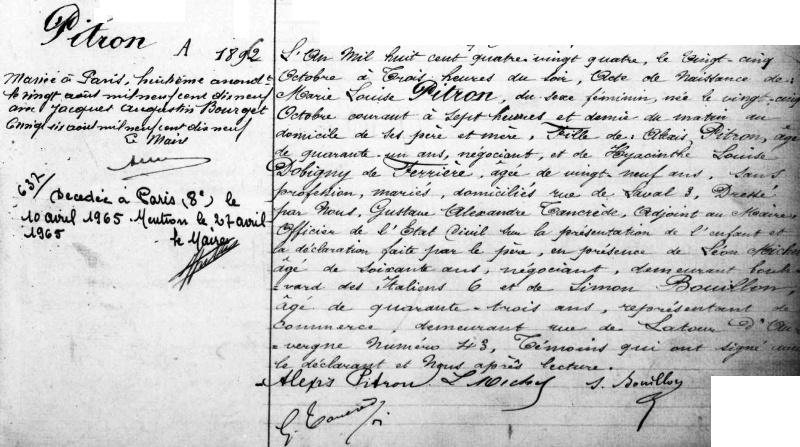 Pitron A 1892
Marié à Paris, huitième arrondt
le vingt août mil neuf cent dix neuf
avec Jacques Augustin Bourget
vingt six août mil neuf cent dix neuf
637/
Décédée à Paris (8e) le
10 avril 1965 Mention le 27 avril
1965
le Maire
L'An Mil huit cent quatre-vingt quatre, le Vingt-cinq
Octobre à Trois heures du soir, Acte de Naissance de:
Marie Louise Pitron, du sexe féminin, née le vingt-cinq
Octobre courant à sept heures et demie du matin au
domicile de ses père et mère, Fille de: Alexis Pitron, âgé
de quarante-un ans, négociant, et de Hyacinthe Louise
Dobigny de Ferrière, âgée de vingt-neuf ans, sans
profession, mariés, domiciliés rue de Laval 3, Dressé
par Nous, Gustave Alexandre Tancrède, Adjoint au Maire
Officier de l'Etat Civil sur la présentation de l'enfant et
la déclaration faite par le père, en présence de Léon Michel
âgé de soixante ans, négociant, demeurant boule
-vard des Italiens 6 et de Simon Bouillon,
âgé de quarante-trois ans, représentant de
commerce, demeurant rue de Latour d'Au
-vergne Numéro 43, Témoins qui ont signé avec
le déclarant et Nous après lecture.
Alexis Pitron L Michel S. Bouillon